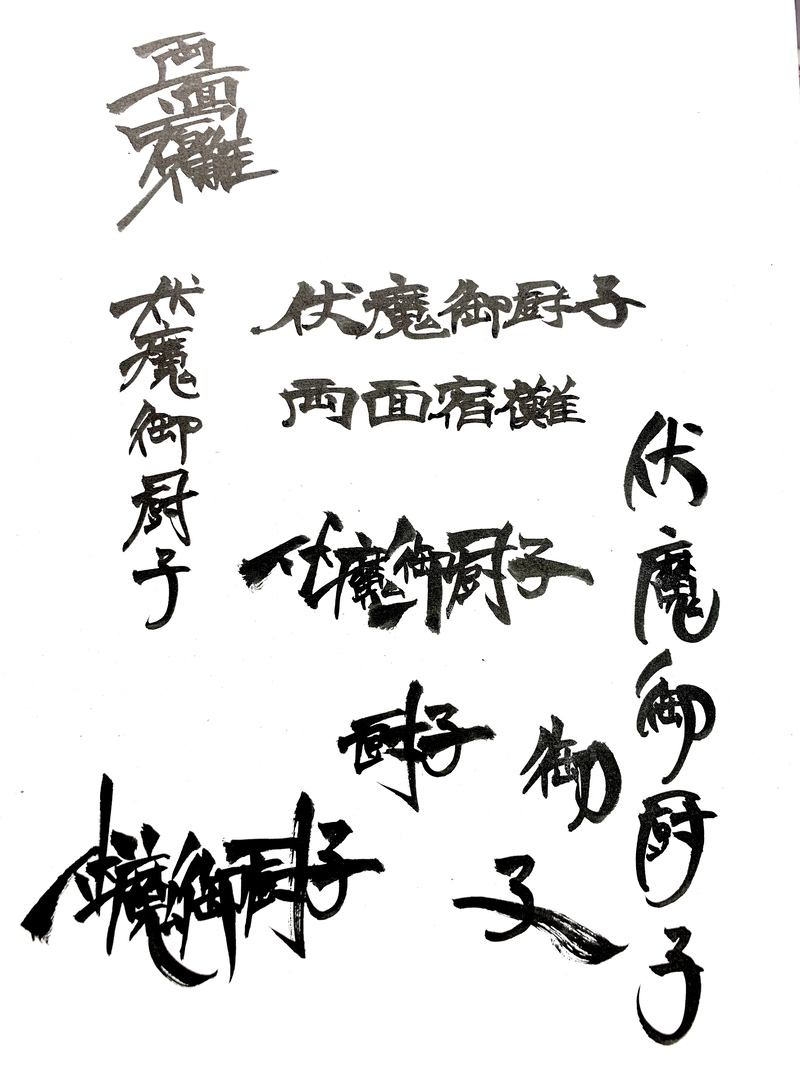 両面宿儺
伏魔御厨子
伏魔御厨子
両面宿儺
伏魔御厨子
伏魔御厨子
厨子
御
伏魔御厨子
子